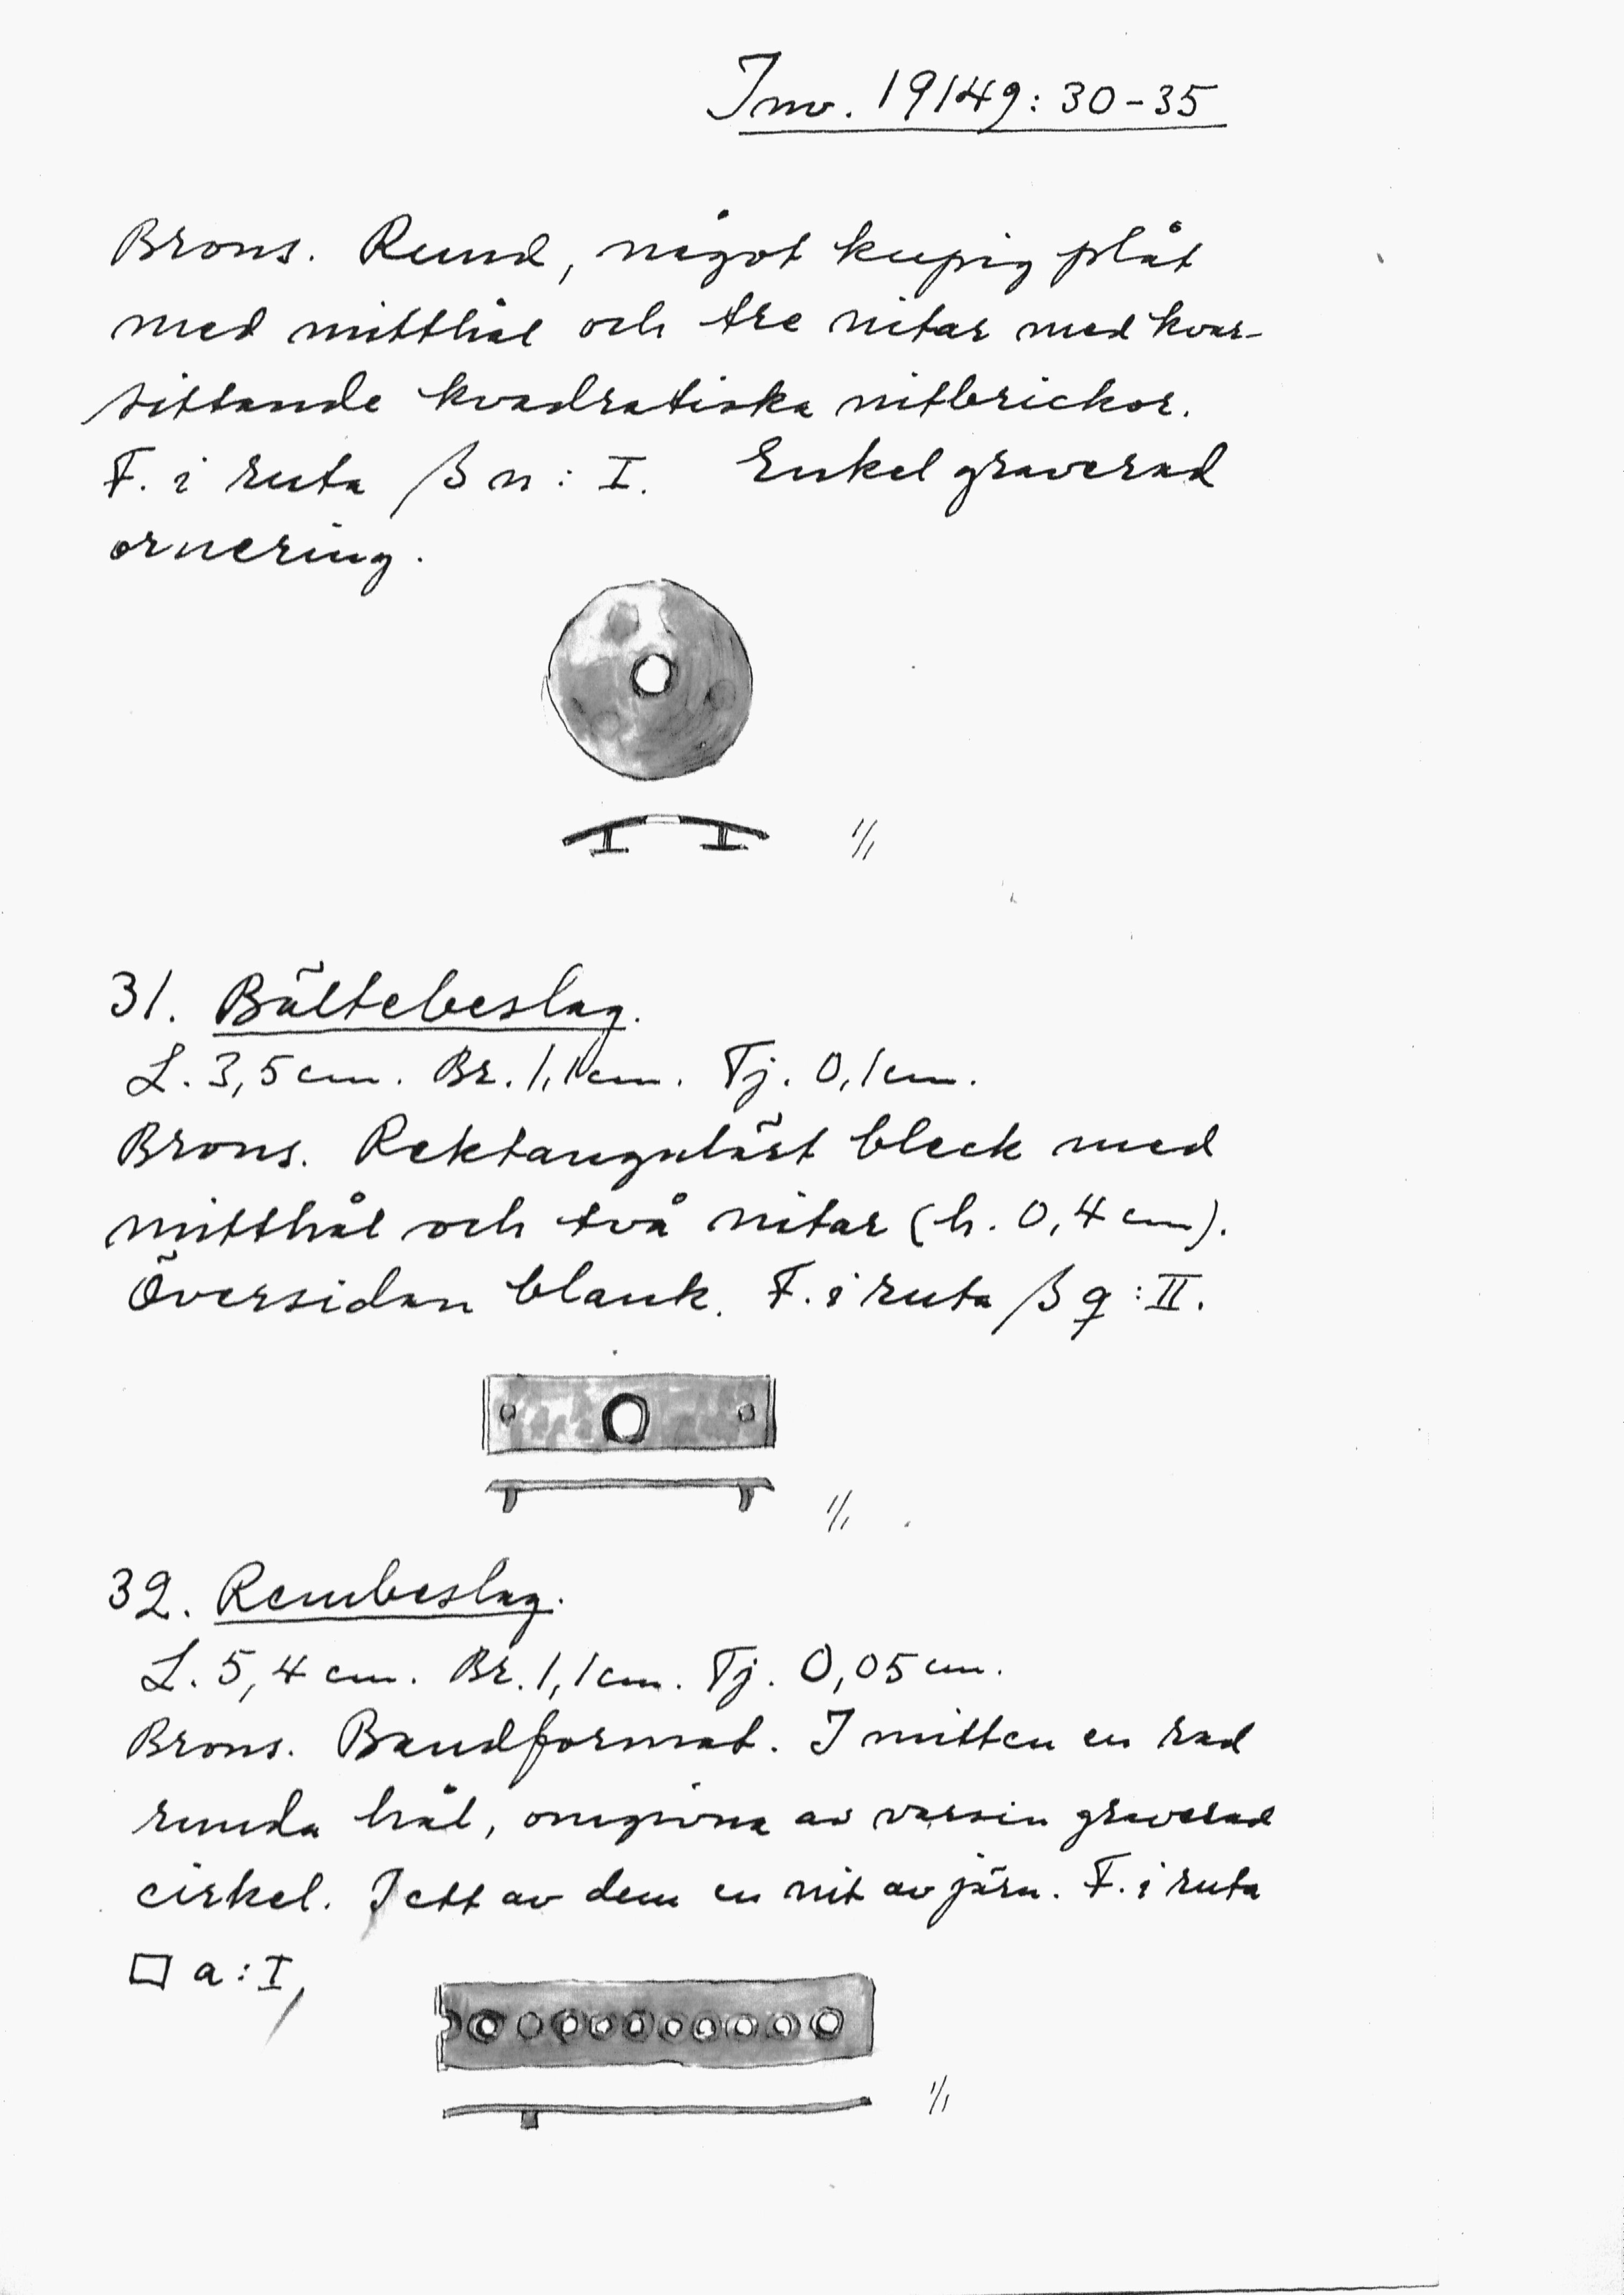 Inv. 19149:30-35
Brons. Rund, något kupig plåt
med mitthål och tre nitar med kvar-
sittande kvadratiska nitbrickor.
F. i ruta β n: I. Enkel graverad
ornering.
1/1
31. Bältebeslag.
L. 3,5 cm. Br. 1,1 cm. Tj. 0,1 cm.
Brons. Rektangulärt bleck med
mitthål och två nitar (h. 0,4 cm).
Översidan blank. F. i ruta β q: II.
1/1
32. Rembeslag.
L. 5,4 cm. Br. 1,1 cm. Tj. 0,05 cm.
Brons. Bandformat. I mitten en rad
runda hål, omgivna av varsin graverad
cirkel. I ett av dem en nit av järn. F. i ruta
□ a: I,
1/1